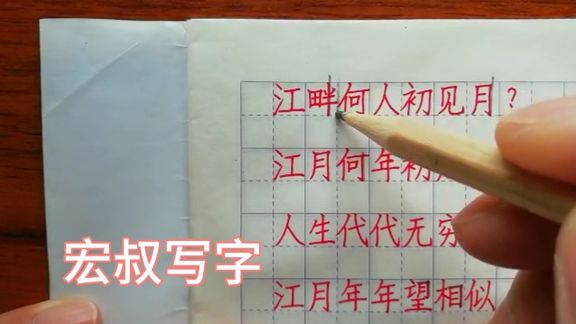 江畔何人初见月？
江月何年初
人生代代无穷
江月年年望相似
宏叔写字